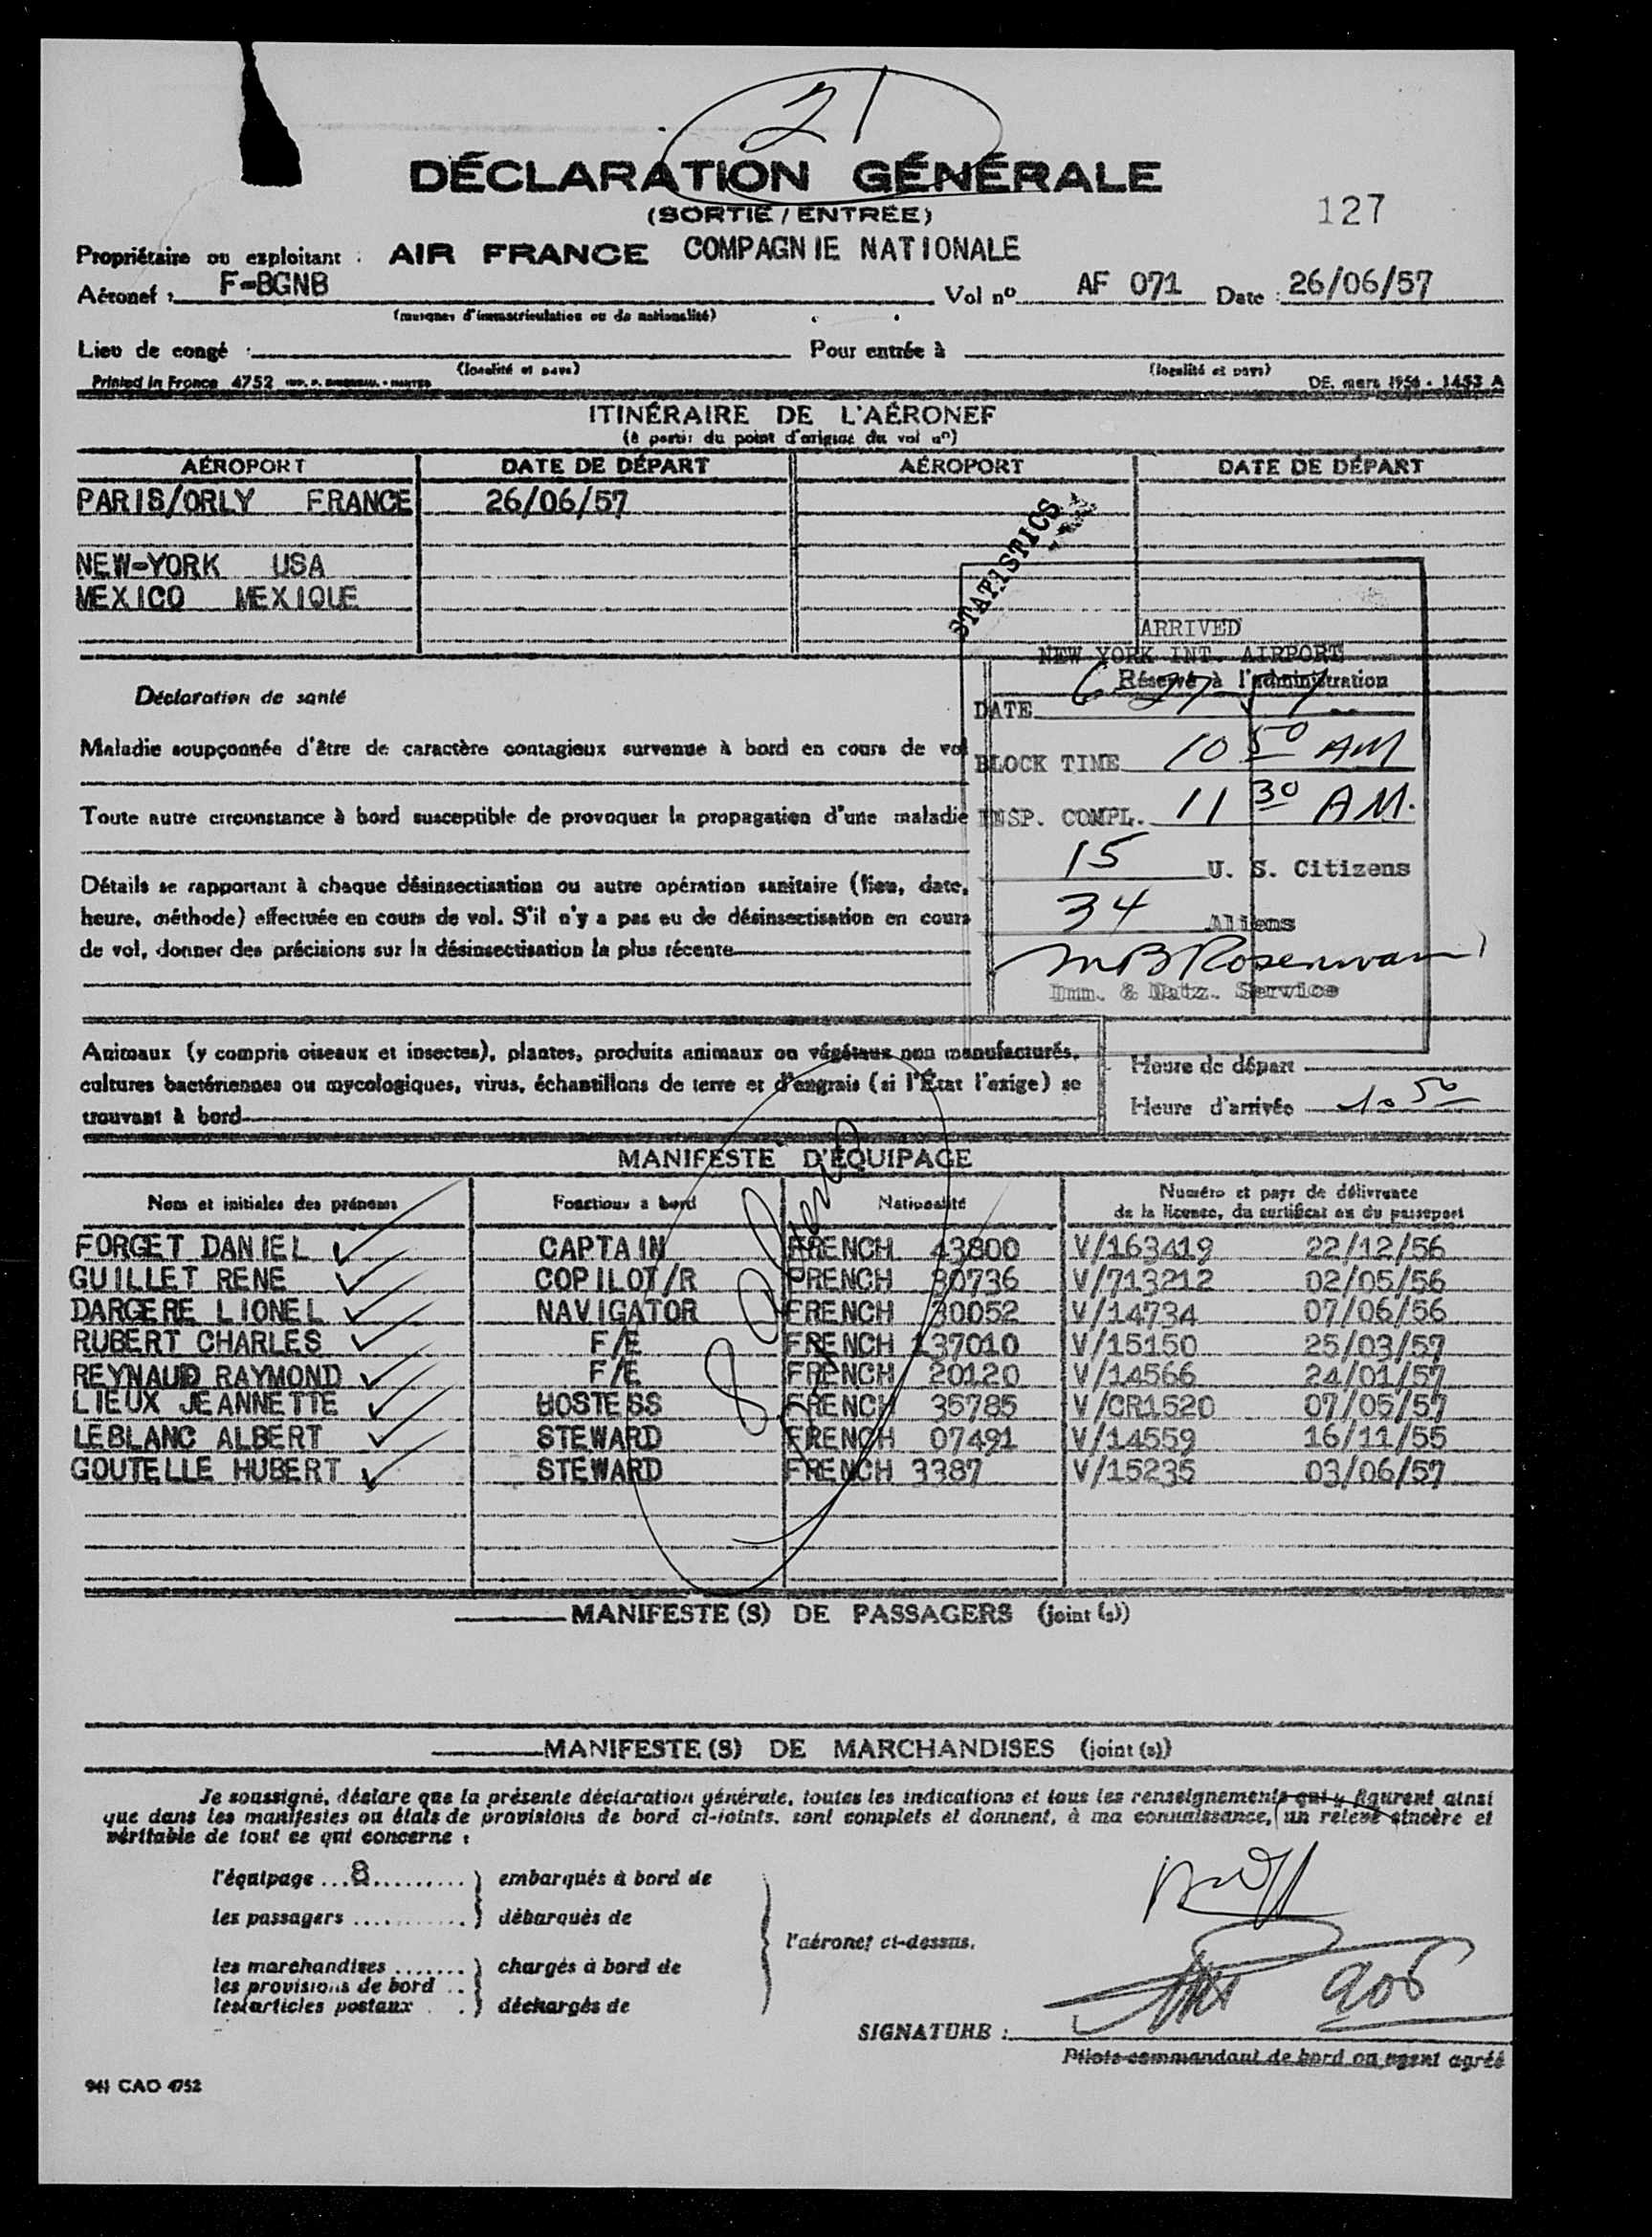 21
DÉCLARATION GÉNÉRALE
(SORTIE / ENTRÉE)
127
Propriétaire ou exploitant : AIR FRANCE COMPAGNIE NATIONALE
Aéronef : F-BGNB Vol nº AF 071 Date : 26/06/57
(marques d'immatriculation ou de nationalité)
Lieu de congé : Pour entrée à
(localité et pays) (localité et pays)
Printed in France 4752 DE. mars 1956 - 1453 A
ITINÉRAIRE DE L'AÉRONEF
(à partir du point d'origine du vol nº)
AÉROPORT DATE DE DÉPART AÉROPORT DATE DE DÉPART
PARIS/ORLY FRANCE 26/06/57
STATISTICS
NEW-YORK USA
MEXICO MEXIQUE
ARRIVED
NEW YORK INT. AIRPORT
Réservé à l'administration
Déclaration de santé
DATE 6 27 57
Maladie soupçonnée d'être de caractère contagieux survenue à bord en cours de vol
BLOCK TIME 10 50 AM
Toute autre circonstance à bord susceptible de provoquer la propagation d'une maladie
INSP. COMPL. 11 30 AM.
15 U. S. Citizens
Détails se rapportant à chaque désinsectisation ou autre opération sanitaire (lieu, date,
heure, méthode) effectuée en cours de vol. S'il n'y a pas eu de désinsectisation en cours
34 Aliens
de vol, donner des précisions sur la désinsectisation la plus récente
Imm. & Natz. Service
Animaux (y compris oiseaux et insectes), plantes, produits animaux ou végétaux non manufacturés,
cultures bactériennes ou mycologiques, virus, échantillons de terre et d'engrais (si l'État l'exige) se
trouvant à bord
Heure de départ
Heure d'arrivée 10 50
MANIFESTE D'ÉQUIPAGE
Nom et initiales des prénoms Fonctions à bord Nationalité Numéro et pays de délivrance
de la licence, du certificat ou du passeport
FORGET DANIEL CAPTAIN FRENCH 43800 V/163419 22/12/56
GUILLET RENE COPILOT/R FRENCH 30736 V/713212 02/05/56
DARGERE LIONEL NAVIGATOR FRENCH 30052 V/14734 07/06/56
RUBERT CHARLES F/E FRENCH 137010 V/15150 25/03/57
REYNAUD RAYMOND F/E FRENCH 20120 V/14566 24/01/57
LIEUX JEANNETTE HOSTESS FRENCH 35785 V/CR1520 07/05/57
LEBLANC ALBERT STEWARD FRENCH 07491 V/14559 16/11/55
GOUTELLE HUBERT STEWARD FRENCH 3387 V/15235 03/06/57
8 Aliens
MANIFESTE (S) DE PASSAGERS (joint (s))
MANIFESTE (S) DE MARCHANDISES (joint (s))
Je soussigné, déclare que la présente déclaration générale, toutes les indications et tous les renseignements qui y figurent ainsi
que dans les manifestes ou états de provisions de bord ci-joints, sont complets et donnent, à ma connaissance, un relevé sincère et
véritable de tout ce qui concerne :
l'équipage ...8......... ) embarqués à bord de
les passagers ............ ) débarqués de
l'aéronef ci-dessus.
les marchandises ....... ) chargés à bord de
les provisions de bord ..
les articles postaux . . ) déchargés de
SIGNATURE :
Pilote commandant de bord ou agent agréé
941 CAO 4752